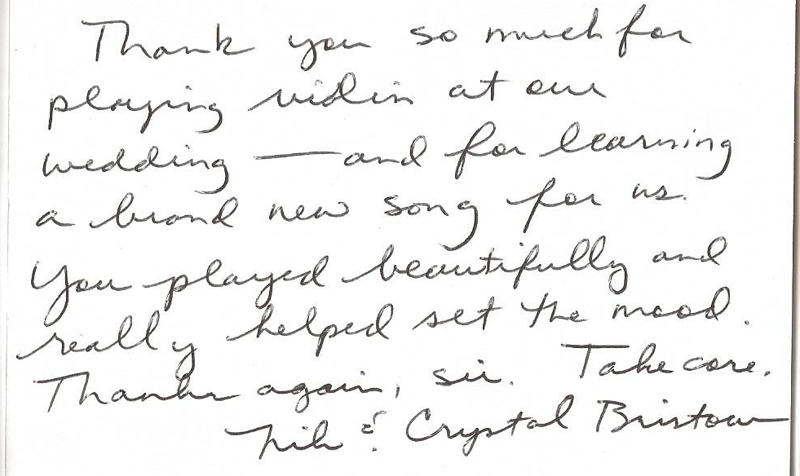 Thank you so much for
playing violin at our
wedding — and for learning
a brand new song for us.
You played beautifully and
really helped set the mood.
Thanks again, sir. Take care.
& Crystal Bristow